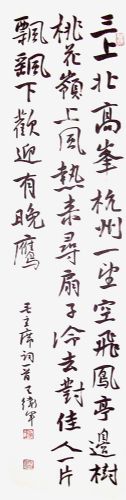 三上北高峯杭州一望空飛鳳亭邊樹
桃花嶺上風熱來尋扇子冷去對佳人一片
飄飄下歡迎有晚鷹
毛主席詞